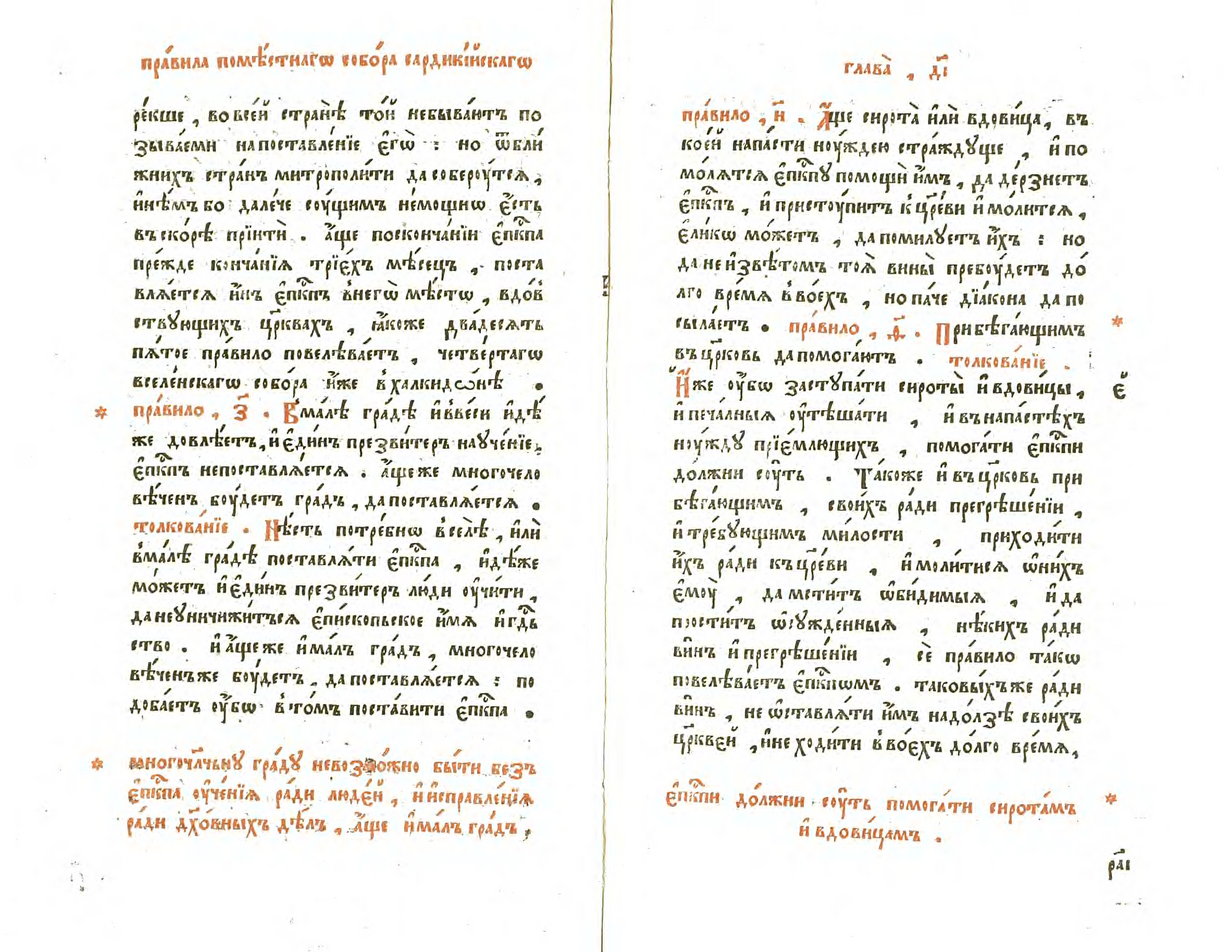 пра́вила помѣ́стнагѡ собо́ра сардикі́йскагѡ
ре́кше , во всей странѣ̀ то́й небыва́ютъ по
зыва́еми на поставле́нїе є҆гѡ̀ : но ѿ бли
жнихъ стра́нъ митрополи́ти да соберꙋ́тсѧ ,
и҆нѣ́мъ бо дале́че сꙋ́щимъ не́мощнѡ є҆́сть
въ ско́рѣ прїитѝ . а҆́ще по сконча́нїи є҆пⷭ҇кпа
пре́жде конча́нїѧ трїе́хъ мѣ́сецъ , поста
влѧ́етсѧ и҆́нъ є҆пⷭ҇кпъ в̾негѡ̀ мѣ́стѡ , вдо́в
ствꙋющихъ цр҃квахъ , ꙗ҆́коже два́десѧть
пѧ́тое пра́вило повелѣва́етъ , четве́ртагѡ
вселе́нскагѡ собо́ра и҆́же в̾ халкидѡ́нѣ .
* пра́вило , з҃ . В̾ ма́лѣ гра́дѣ и҆ в̾ ве́си и҆дѣ́
же довлѣ́етъ , и҆ є҆ди́нъ презви́теръ на ᲂу҆че́нїе ,
є҆пⷭ҇кпъ непоставлѧ́етсѧ . а҆́ще же многочело
вѣ́ченъ бꙋ́детъ гра́дъ , да поставлѧ́етсѧ .
толкова́нїе . Нѣ́сть потре́бнѡ в̾ селѣ̀ , и҆лѝ
в̾ ма́лѣ гра́дѣ поставлѧ́ти є҆пⷭ҇кпа , и҆дѣ́же
мо́жетъ и҆ є҆ди́нъ презви́теръ лю́ди ᲂу҆чи́ти ,
да не ᲂу҆ничижи́тьсѧ є҆пи́скопьское и҆́мѧ и҆ гд҇ь
ство . и҆ а҆́ще же и҆ ма́лъ гра́дъ , многочело
вѣ́ченъ же бꙋ́детъ , да поставлѧ́етсѧ : по
доба́етъ ᲂу҆́бѡ в̾ то́мъ поста́вити є҆пⷭ҇кпа .
* многочл҃чьнꙋ гра́дꙋ невозмо́жно бы́ти безъ
є҆пⷭ҇кпа ᲂу҆че́нїѧ ра́ди люде́й , и҆ и҆справле́нїѧ
ра́ди дꙋхо́вныхъ дѣ́лъ , а҆́ще и҆ ма́лъ гра́дъ .
глава̀ , д҃і
пра́вило , и҃ . А҆́ще сирота̀ и҆лѝ вдови́ца , въ
кое́й напа́сти нꙋ́ждею стра́ждꙋще , и҆ по
мо́лѧтсѧ є҆пⷭ҇кпꙋ помощѝ и҆́мъ , да де́рзнетъ
є҆пⷭ҇кпъ , и҆ пристꙋ́питъ к̾ цр҃е́ви и҆ мо́литсѧ ,
є҆ли́кѡ мо́жетъ , да поми́лꙋетъ и҆́хъ : но
да не и҆звѣ́томъ тоѧ̀ вины̀ пребꙋ́детъ до́
лго вре́мѧ в̾ во́ехъ , но па́че дїа́кона да по
сыла́етъ . пра́вило , ѳ҃ . Прибѣга́ющимъ *
въ цр҃ковь да помога́ютъ . толкова́нїе .
И҆̀же ᲂу҆́бѡ застꙋпа́ти сироты̀ и҆ вдови́цы , є҃
и҆ печа́лныѧ ᲂу҆тѣша́ти , и҆ въ напа́стѣхъ
нꙋ́ждꙋ прїе́млющихъ , помога́ти є҆пⷭ҇кпи
до́лжни сꙋ́ть . Та́коже и҆ въ цр҃ковь при
бѣга́ющимъ , свои́хъ ра́ди прегрѣше́нїи ,
и҆ тре́бꙋющимъ ми́лости , приходи́ти
и҆́хъ ра́ди къ цр҃е́ви , и҆ моли́тисѧ ѡ҆ ни́хъ
є҆мꙋ̀ , да мсти́тъ ѡ҆би́димыѧ , и҆ да
прости́тъ ѡ҆сꙋжде́нныѧ , нѣ́кихъ ра́ди
ви́нъ и҆ прегрѣше́нїи , сѐ пра́вило та́кѡ
повелѣва́етъ є҆пⷭ҇кпѡмъ . таковы́хъ же ра́ди
ви́нъ , не ѡ҆ставлѧ́ти и҆́мъ надо́лзѣ свои́хъ
цр҃кве́й , и҆ не ходи́ти в̾ во́ехъ до́лго вре́мѧ ,
є҆пⷭ҇кпи до́лжни сꙋ́ть помога́ти сирота́мъ *
и҆ вдови́цамъ .
ра҃і